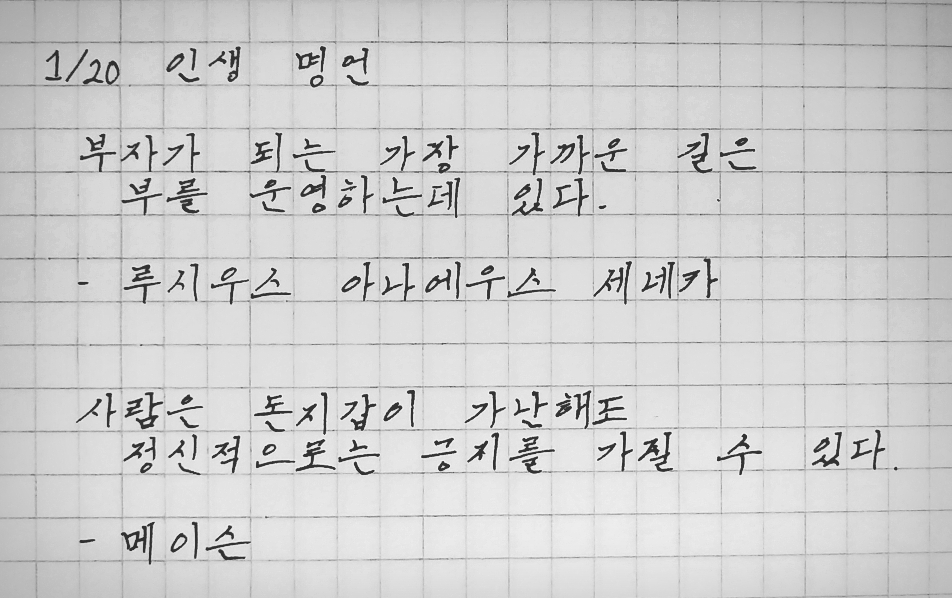 1/20 인생 명언
부자가 되는 가장 가까운 길은
부를 운영하는데 있다.
- 루시우스 아나에우스 세네카
사람은 돈지갑이 가난해도
정신적으로는 긍지를 가질 수 있다.
- 메이슨